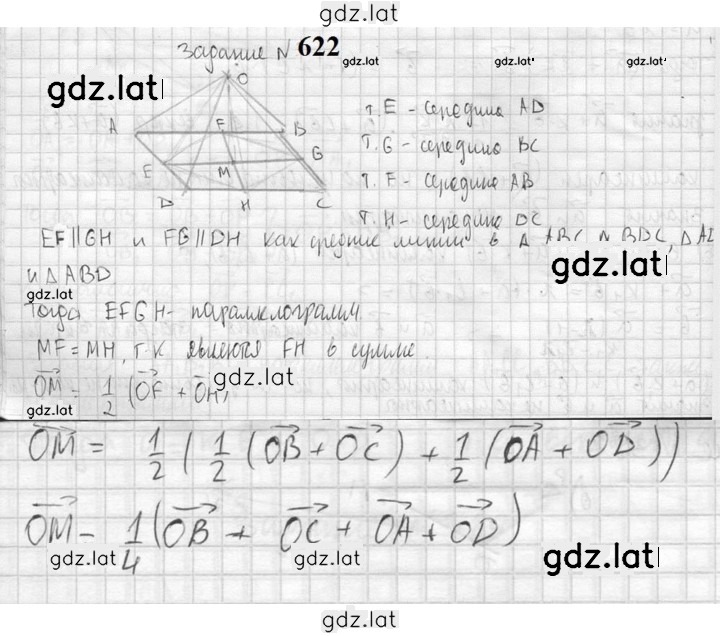 gdz.lat
Задание № 622
gdz.lat
gdz.lat
gdz.lat
O
A F B
E M G
D H C
т. E - середина AD
т. G - середина BC
т. F - середина AB
т. H - середина DC
EF||GH и FG||DH как средние линии в Δ ABC и BDC, Δ
и Δ ABD
gdz.lat
gdz.lat
Тогда EFGH - параллелограмм
MF = MH, т.к FH в сумме.
OM = 1/2 (OF + OH)
gdz.lat
gdz.lat
gdz.lat
OM = 1/2 (1/2 (OB + OC) + 1/2 (OA + OD))
OM - 1/4 (OB + OC + OA + OD)
gdz.lat
gdz.lat
gdz.lat
gdz.lat